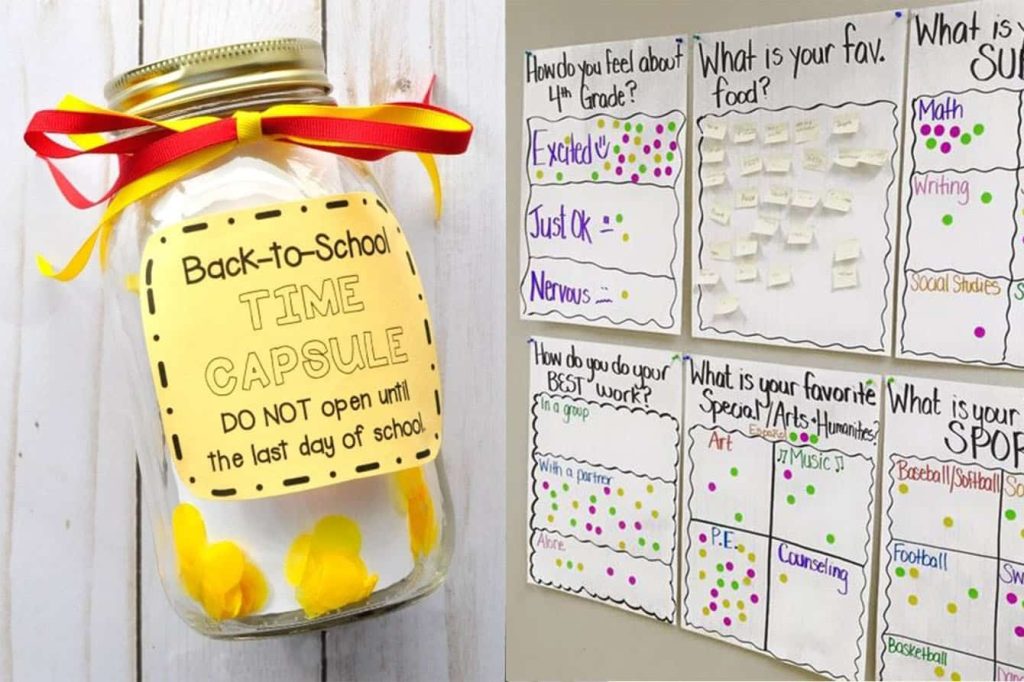 Back-to-School
TIME
CAPSULE
DO NOT open until
the last day of school.
How do you feel about
4th Grade?
Excited
Just OK
Nervous
What is your fav.
food?
What is
Math
Writing
Social Studies
How do you do your
BEST work?
In a group
With a partner
Alone
What is your favorite
Special/Arts + Humanities?
Español
Art
Music
P.E.
Counseling
What is your
Baseball/Softball
Football
Basketball